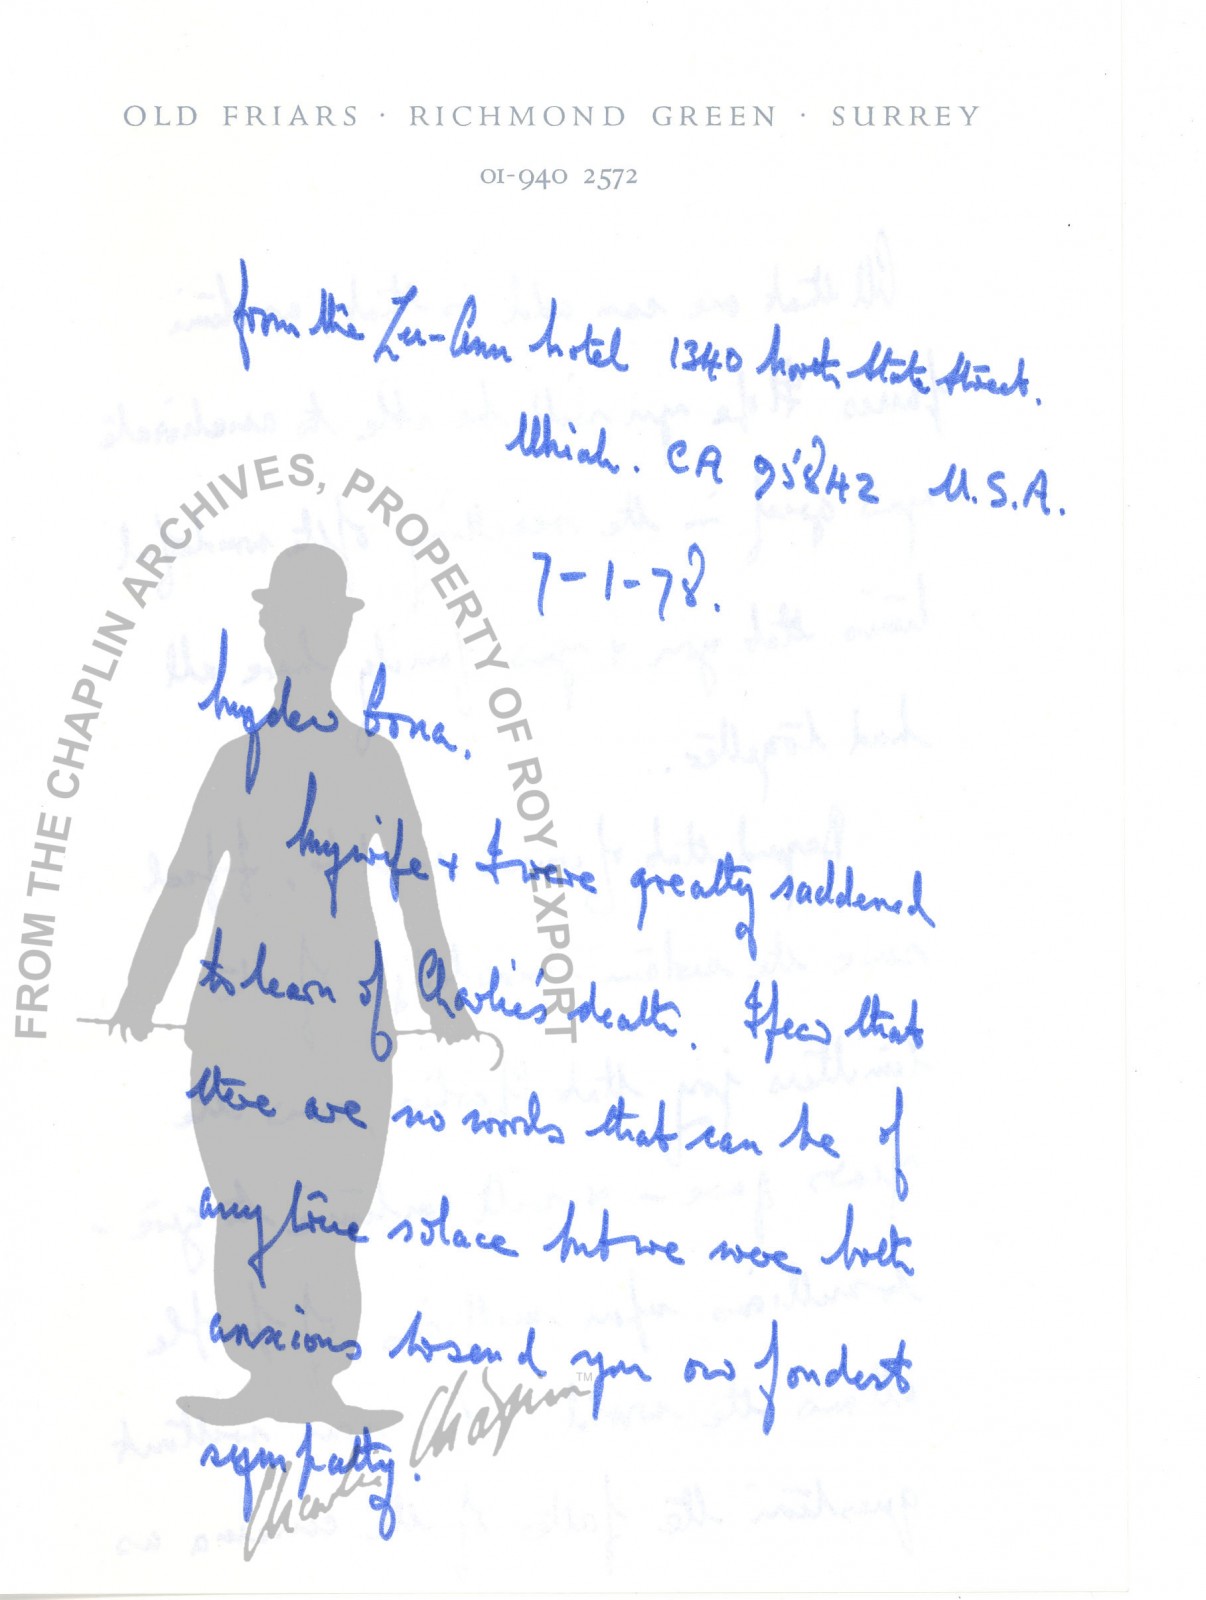 OLD FRIARS · RICHMOND GREEN · SURREY
01-940 2572
from the Lu-Ann hotel 1340 North State Street.
Ukiah. CA 95842 U.S.A.
7-1-78.
My dear Oona.
My wife & I were greatly saddened
to learn of Charlie's death. I fear that
there are no words that can be of
any true solace but we were both
anxious to send you our fondest
sympathy.
FROM THE CHAPLIN ARCHIVES, PROPERTY OF ROY EXPORT
Charlie Chaplin TM